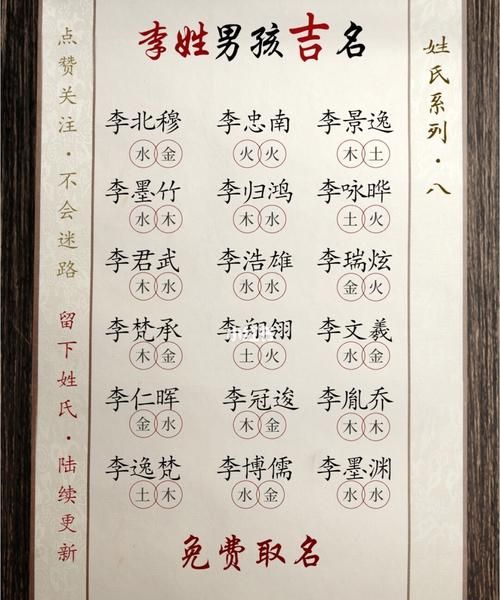 李姓男孩吉名
姓氏系列·八
点赞关注·不会迷路
留下姓氏·陆续更新
李北穆 李忠南 李景逸
水金 火火 木土
李墨竹 李归鸿 李咏晔
水木 木水 土火
李君武 李浩雄 李瑞炫
木水 水水 金火
李梵承 李 翎 李文羲
木金 土火 水金
李仁晖 李冠逡 李胤乔
金水 木金 木木
李逸梵 李博儒 李墨渊
土木 水金 水水
免费取名